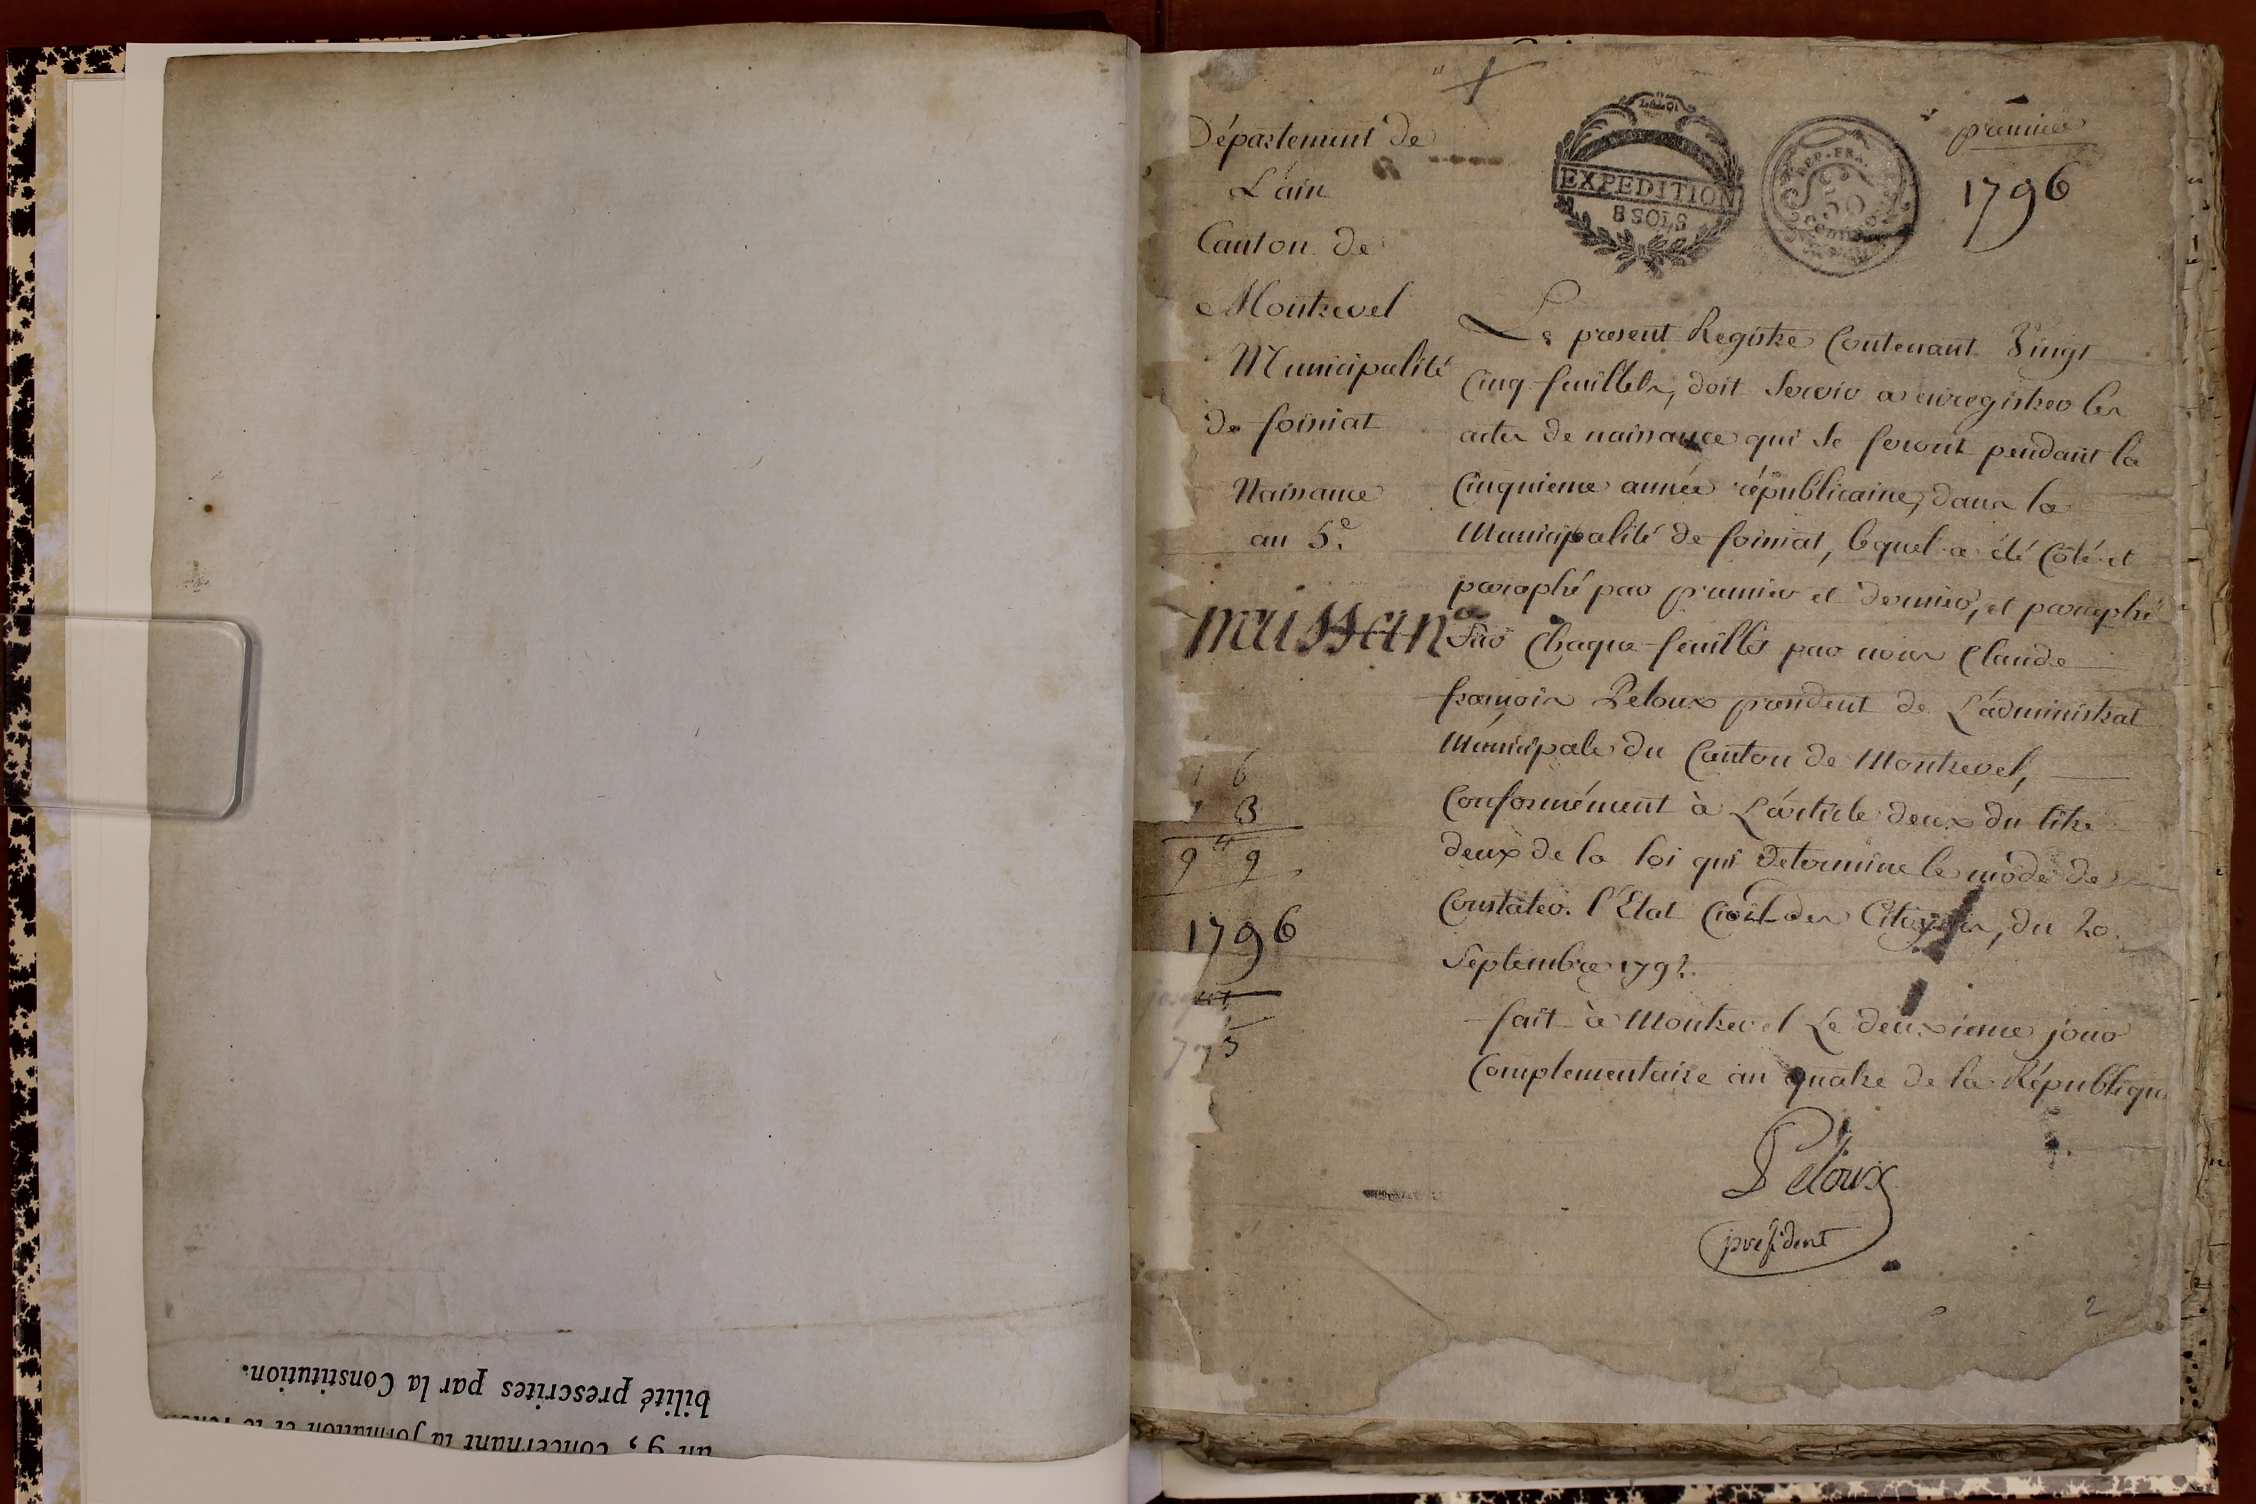 bilité prescrites par la Constitution.
an 9, concernant la formation et le
Département de
L'ain
Canton de
Montrevel
Municipalité
de foiniat
Naissance
an 5e.
naissan
1 6
1 8
9 9
1796
LA LOI
EXPEDITION
8 SOLS
REP. FRA.
50
premier
1796
Le present Registre Contenant Vingt
Cinq feuillets, doit Servir a enregistrer les
actes de naissance qui se feront pendant la
Cinquieme année républicaine, dans la
Municipalité de foiniat, lequel a été Côté et
paraphé par premier et dernier, et paraphé
Sur Chaque feuillet par nous Claude
françois Peloux president de L'administrat
Municipale du Canton de Montrevel,
Conformément à L'article deux du titre
deux de la loi qui determine le mode de
Constater l'Etat Civil des Citoyens, du 20.
Septembre 1792.
fait à Montrevel Le deuxieme jour
Complementaire an quatre de la Républiqu
Peloux
président
2